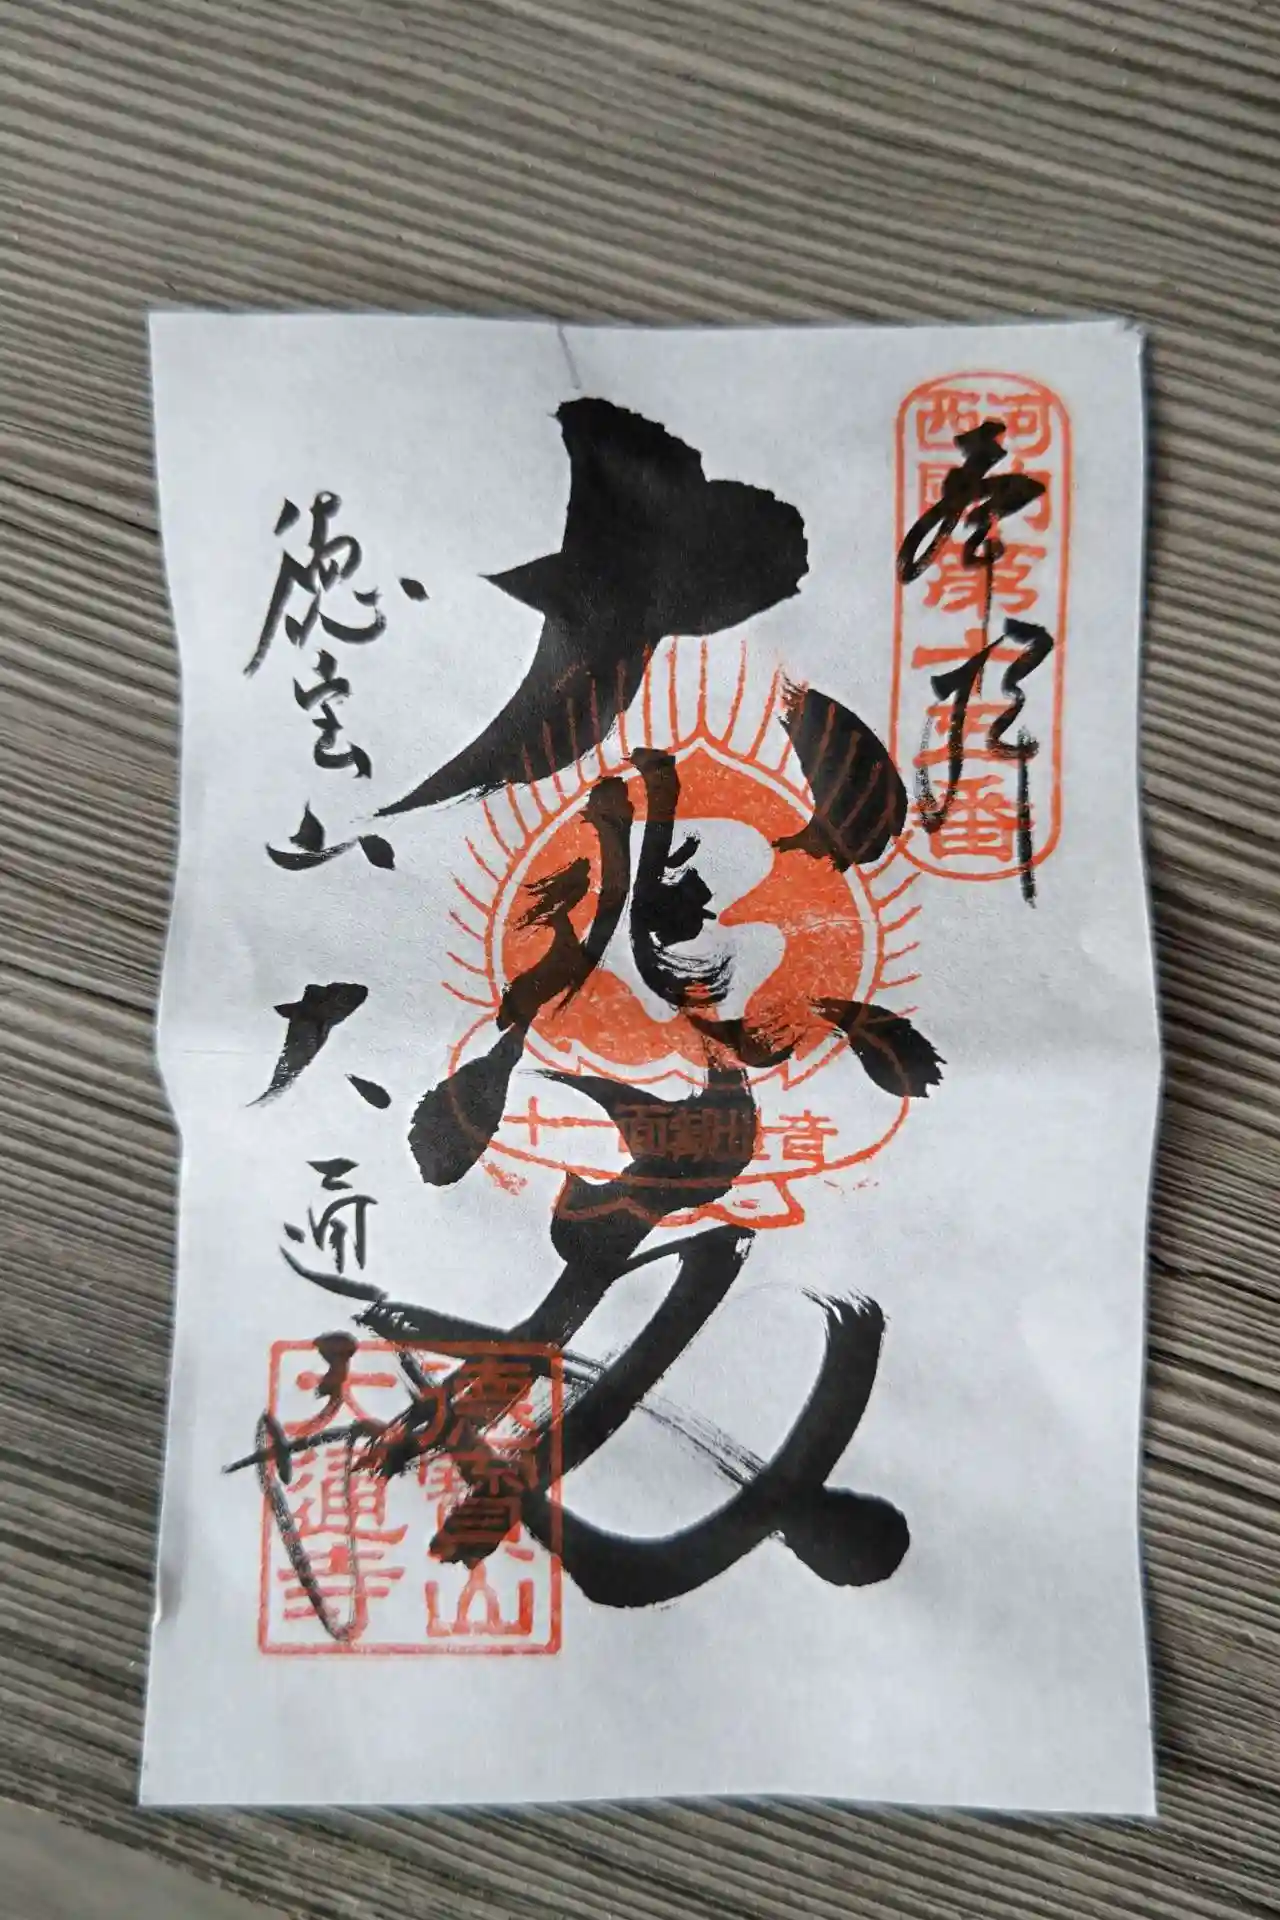 奉拝
河内
西國
第十五番
大悲殿
十一面観世音
徳宝山 大通寺
徳寶山
大通寺